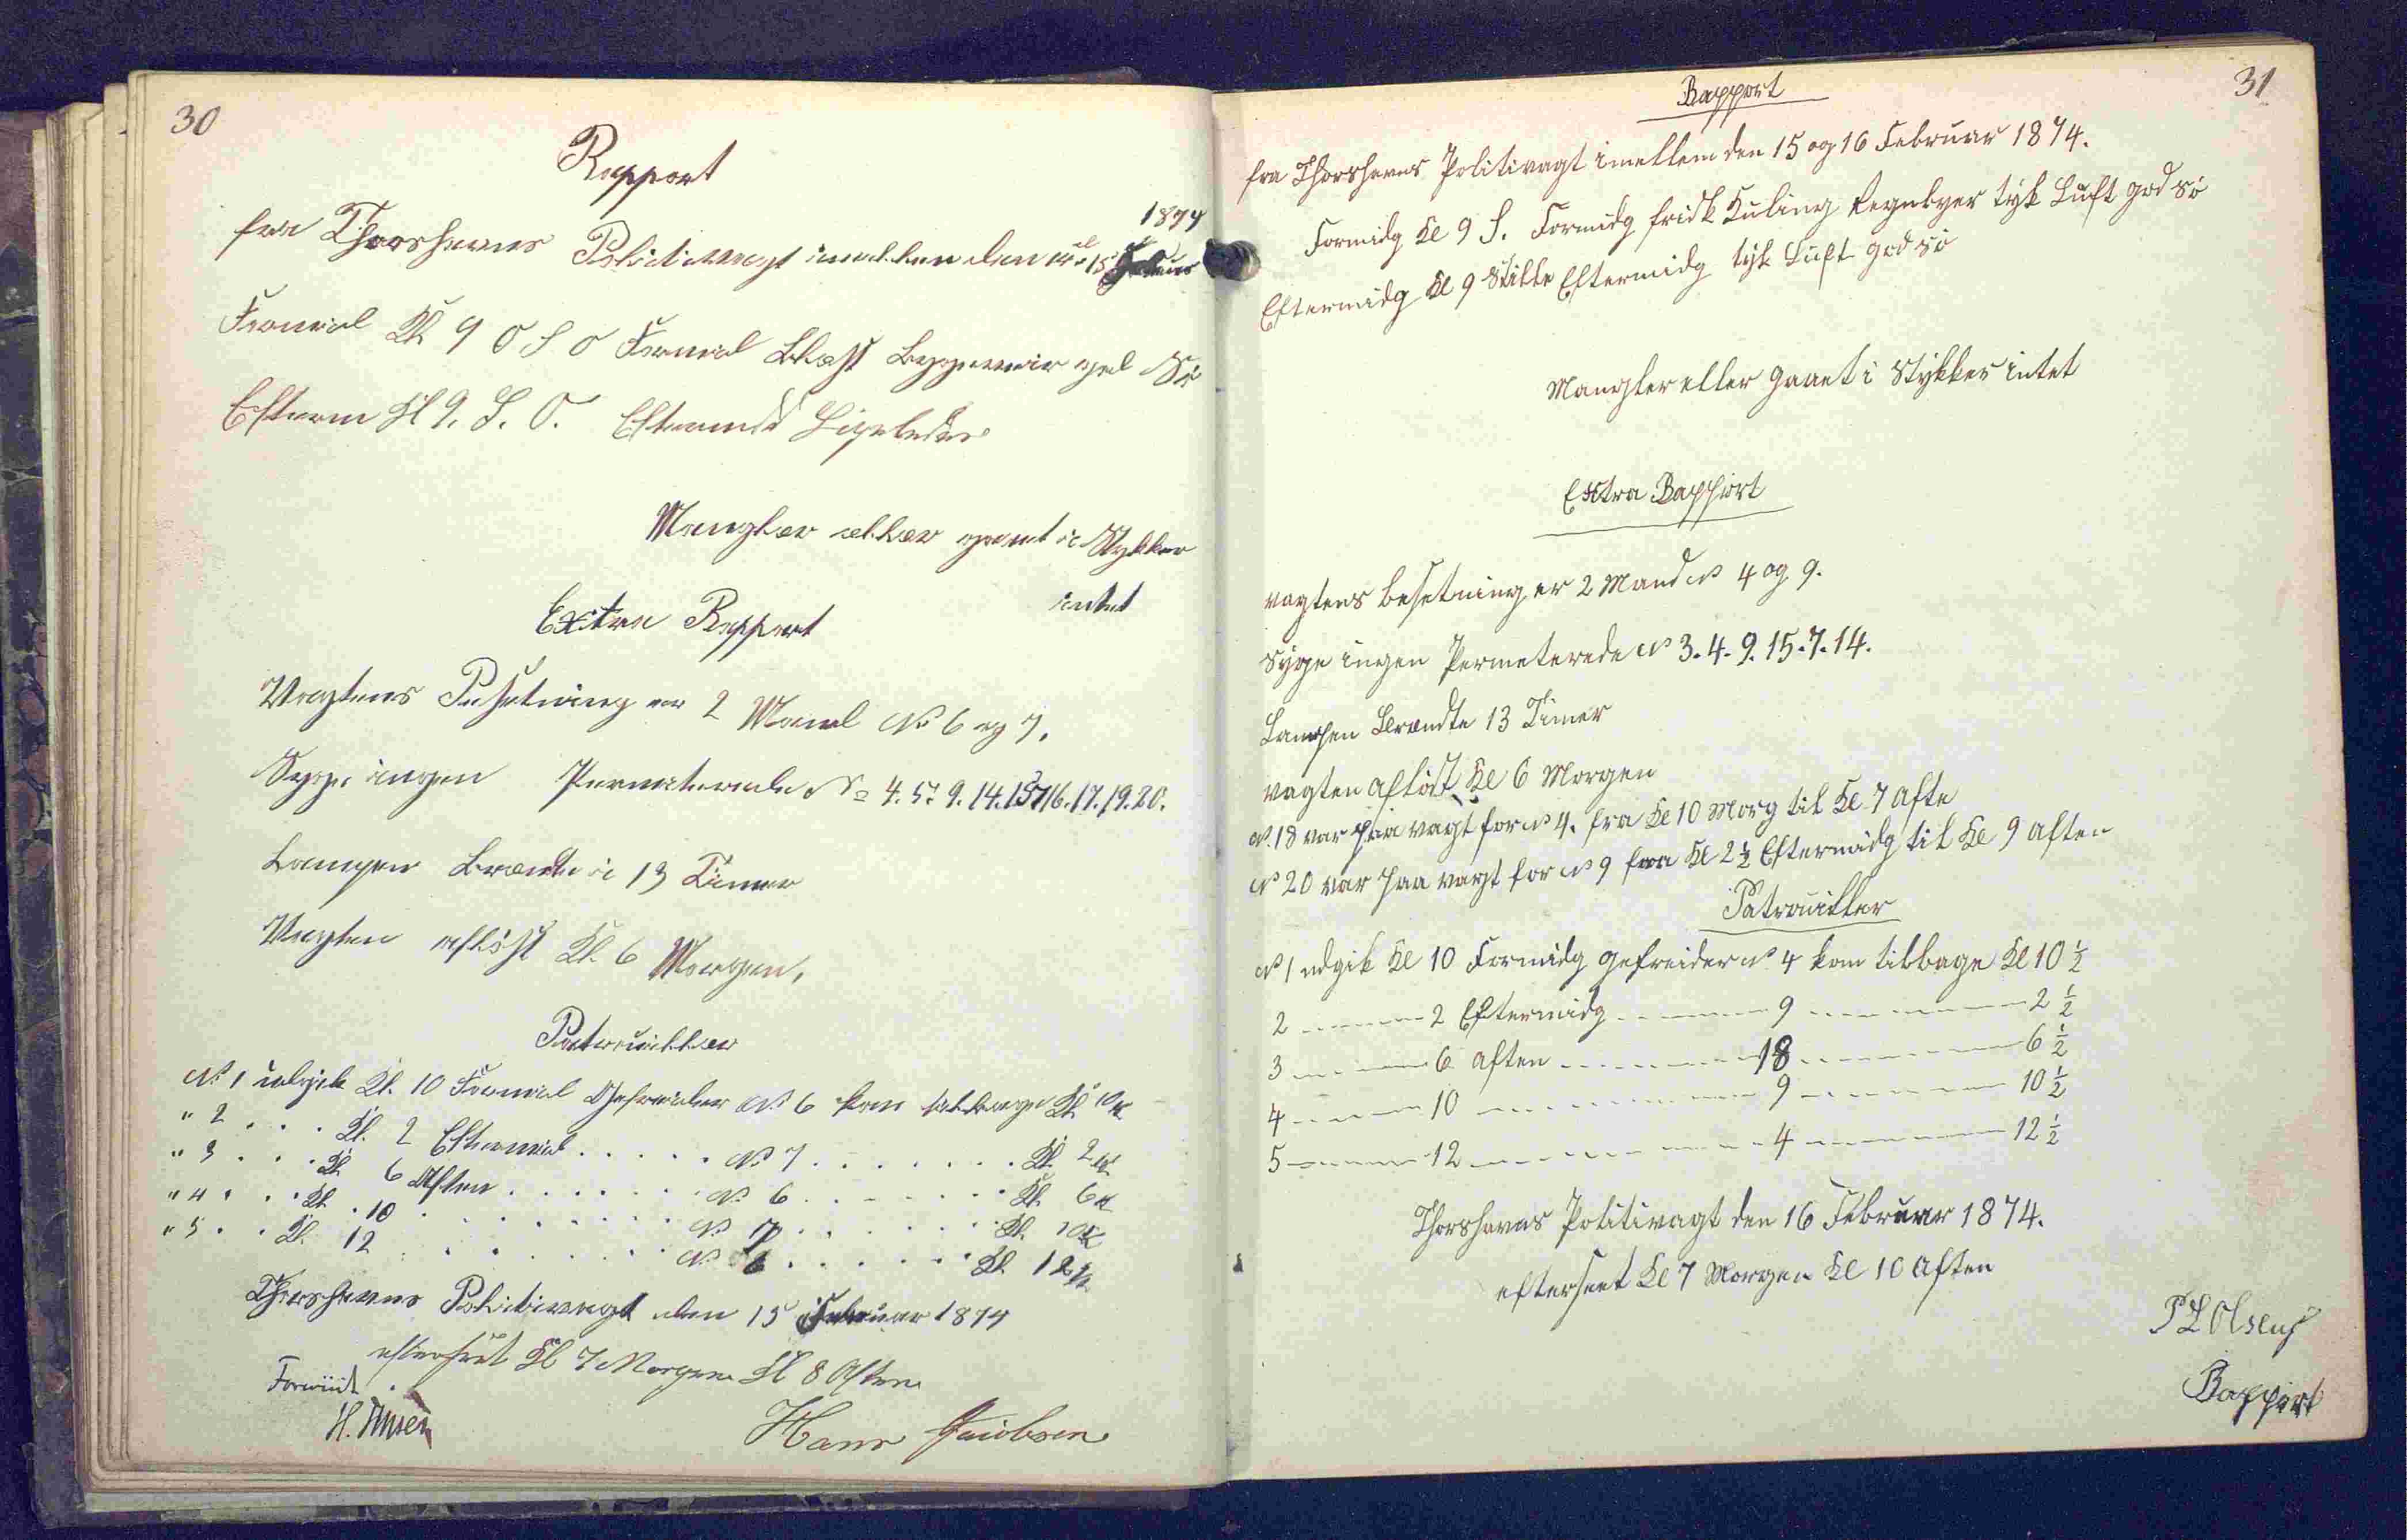 30
Rapport
1874
fra Thorshavns Politivagt imellem den 14 & 15 Februar
Formid Kl 9 O S O Formid Blæst Byggeveir god Sö
Efterm Kl 9. S. O. Eftermd Ligeledes
Mangler eller gaaet i Stykker
intet
Extra Rapport
Vagtens Besetning er 2 Mand No 6 og 7.
Syge ingen Permeterede No 4. 5. 9. 14. 15 16. 17. 19. 20.
Lampen Brændte i 13 Timer
Vagten aflöst Kl. 6 Morgen.
Patrouiller
No 1 udgik Kl. 10 Formid Gefreider No 6 kom tilbage Kl 10½
" 2 . . . Kl. 2 Eftermid . . . . . No 7 . . . . . . . Kl. 2½
" 3 . . . Kl 6 Aften . . . . . . . No 6 . . . . . . . Kl. 6½
" 4 . . . Kl. 10 . . . . . . . . . No 7 . . . . . . . Kl. 10½
" 5 . . Kl. 12 . . . . . . . . . No 6 . . . . . . Kl. 12½
Thorshavns Politivagt den 15 Februar 1874
efterseet Kl 7 Morgen Kl 8 Aften
Forevist
Hans Jacobsen
31
Rapport
fra Thorshavns Politivagt imellem den 15 og 16 Februar 1874.
Formidg Kl 9 S. Formidg frisk Kuling Regnbyer tyk Luft god Sö
Eftermidg Kl 9 Stille Eftermidg tyk Luft god Sö
Mangler eller gaaet i Stykker intet
Extra Rapport
vagtens besetning er 2 Mand No 4 og 9.
Syge ingen Permeterede No 3. 4. 9. 15. 7. 14.
Lampen Brændte 13 Timer
vagten aflöst Kl 6 Morgen
No 18 var paa vagt for No 4. fra Kl 10 Morg til Kl 7 Afte
No 20 var paa vagt for No 9 fra Kl 2½ Eftermidg til Kl 9 aften
Patrouiller
No 1 udgik Kl 10 Formidg gefreider No 4 kom tilbage Kl 10½
2 ------ 2 Eftermidg ------ 9 ------ 2½
3 ------ 6 aften ------ 18 ------ 6½
4 ------ 10 ------ 9 ------ 10½
5 ------ 12 ------ 4 ------ 12½
Thorshavns Politivagt den 16 Februar 1874.
efterseet Kl 7 Morgen Kl 10 Aften
P L Olsen
Rapport